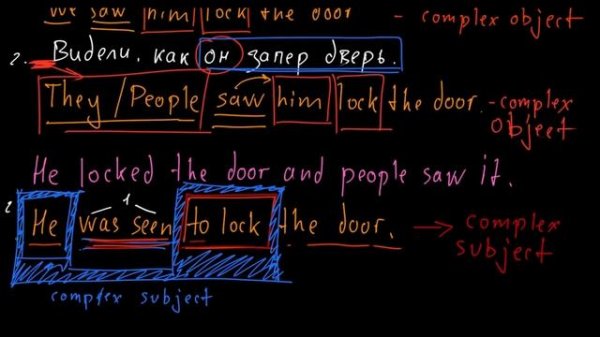 We saw him lock the door - complex object
2. Видели, как он запер дверь.
They / People saw him lock the door. - complex object
He locked the door and people saw it.
1
2 He was seen to lock the door. → complex subject
complex subject